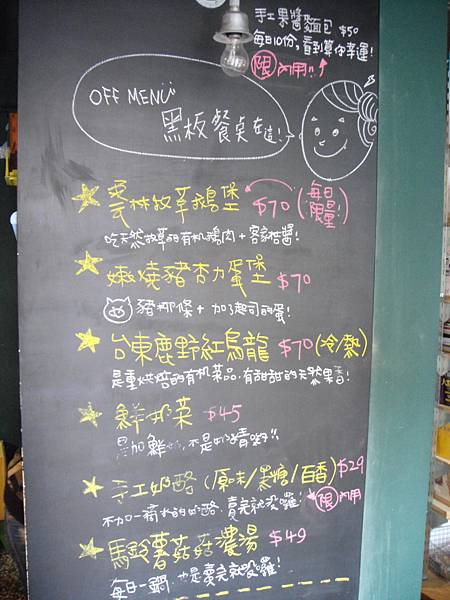 手工果醬麵包 $50
每日10份,看到算你幸運!
限 內用!!
OFF MENU
黑板餐桌在這!
雲林放草鵝堡 $70 (每日限量!)
吃天然牧草的有機鵝肉+客家桔醬!
嫩燒豬杏力蛋堡 $70
豬柳條+加了起司的蛋!
台東鹿野紅烏龍 $70 (冷/熱)
是重烘焙的有机茶品,有甜甜的天然果香!
鮮奶菜 $45
是加鮮奶,不是奶精喲!!
手工奶酪 (原味/黑糖/百香) $29
不加一滴水的奶酪,賣完就沒囉! 限 內用
馬鈴薯菇菇濃湯 $49
每日一鍋,也是賣完就沒囉!